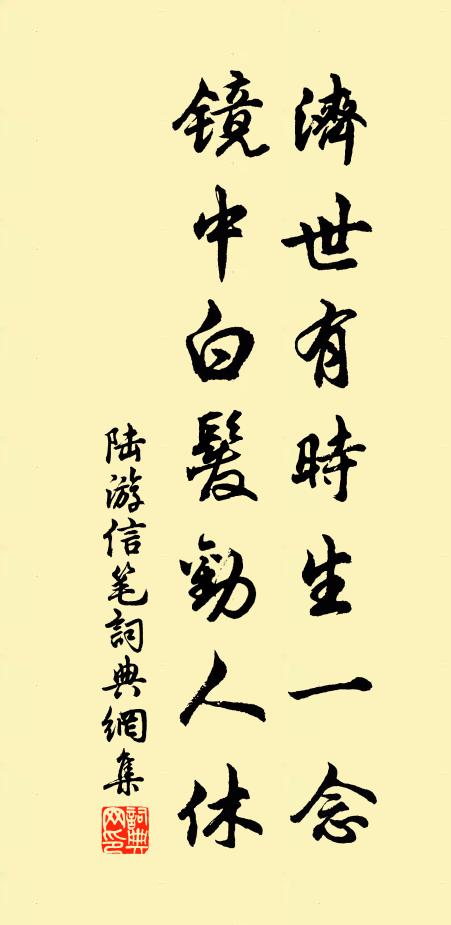 濟世有時生一念
镜中白髮勸人休
陆游信笔詞典網集
詞典网印